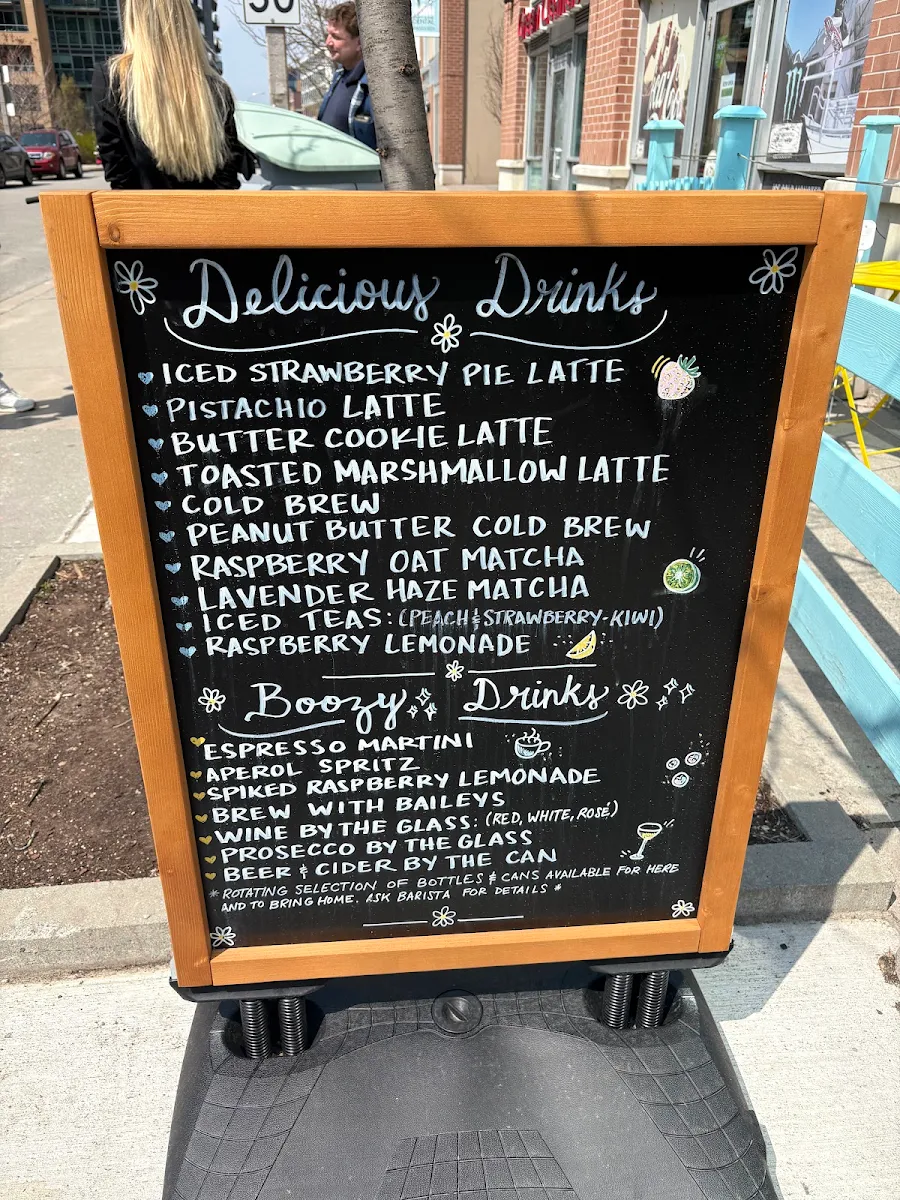 50
Delicious Drinks
ICED STRAWBERRY PIE LATTE
PISTACHIO LATTE
BUTTER COOKIE LATTE
TOASTED MARSHMALLOW LATTE
COLD BREW
PEANUT BUTTER COLD BREW
RASPBERRY OAT MATCHA
LAVENDER HAZE MATCHA
ICED TEAS: (PEACH & STRAWBERRY-KIWI)
RASPBERRY LEMONADE
Boozy Drinks
ESPRESSO MARTINI
APEROL SPRITZ
SPIKED RASPBERRY LEMONADE
BREW WITH BAILEYS
WINE BY THE GLASS: (RED, WHITE, ROSÉ)
PROSECCO BY THE GLASS
BEER & CIDER BY THE CAN
* ROTATING SELECTION OF BOTTLES & CANS AVAILABLE FOR HERE
AND TO BRING HOME. ASK BARISTA FOR DETAILS *